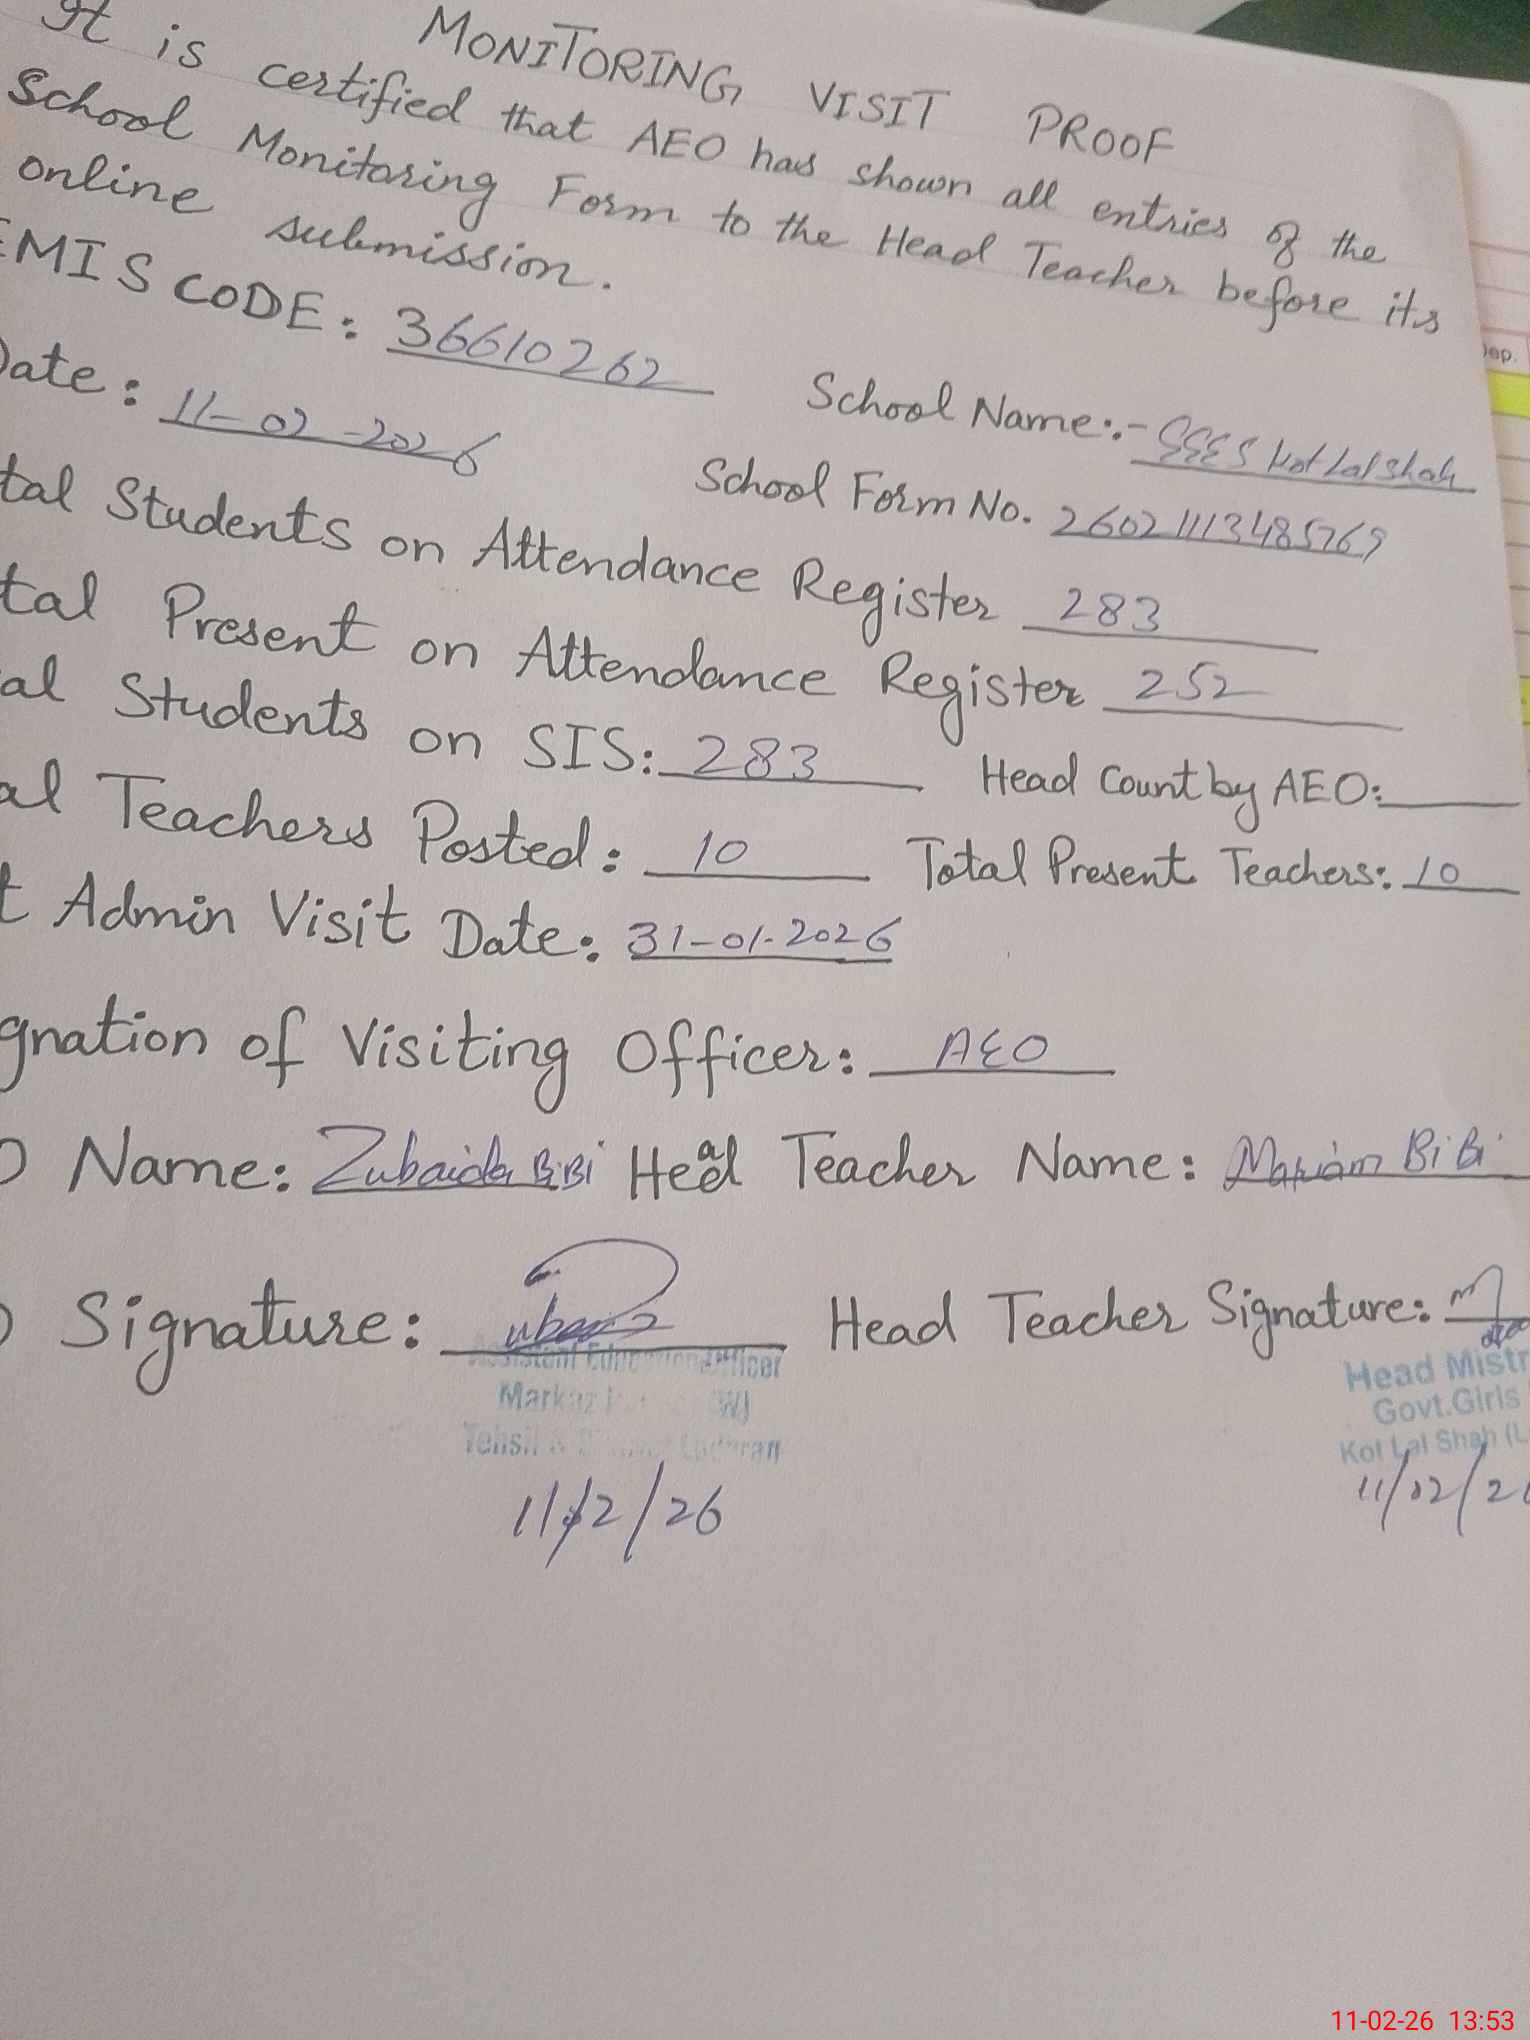 MONITORING VISIT PROOF
It is certified that AEO has shown all entries of the
School Monitoring Form to the Head Teacher before its
online submission.
EMIS CODE: 36610262 School Name:- GGES Kot Lal Shah
Date: 11-02-2026 School Form No. 260211113485769
tal Students on Attendance Register 283
tal Present on Attendance Register 252
al Students on SIS: 283 Head Count by AEO:
al Teachers Posted: 10 Total Present Teachers: 10
t Admin Visit Date: 31-01-2026
gnation of Visiting Officer: AEO
O Name: Zubaida BiBi Head Teacher Name: Mariam BiBi
O Signature: Head Teacher Signature:
Assistant Education Officer Head Mistr
Markaz (W) Govt.Girls
Tehsil & Lodhran Kot Lal Shah (L
11/2/26 11/02/2
11-02-26 13:53